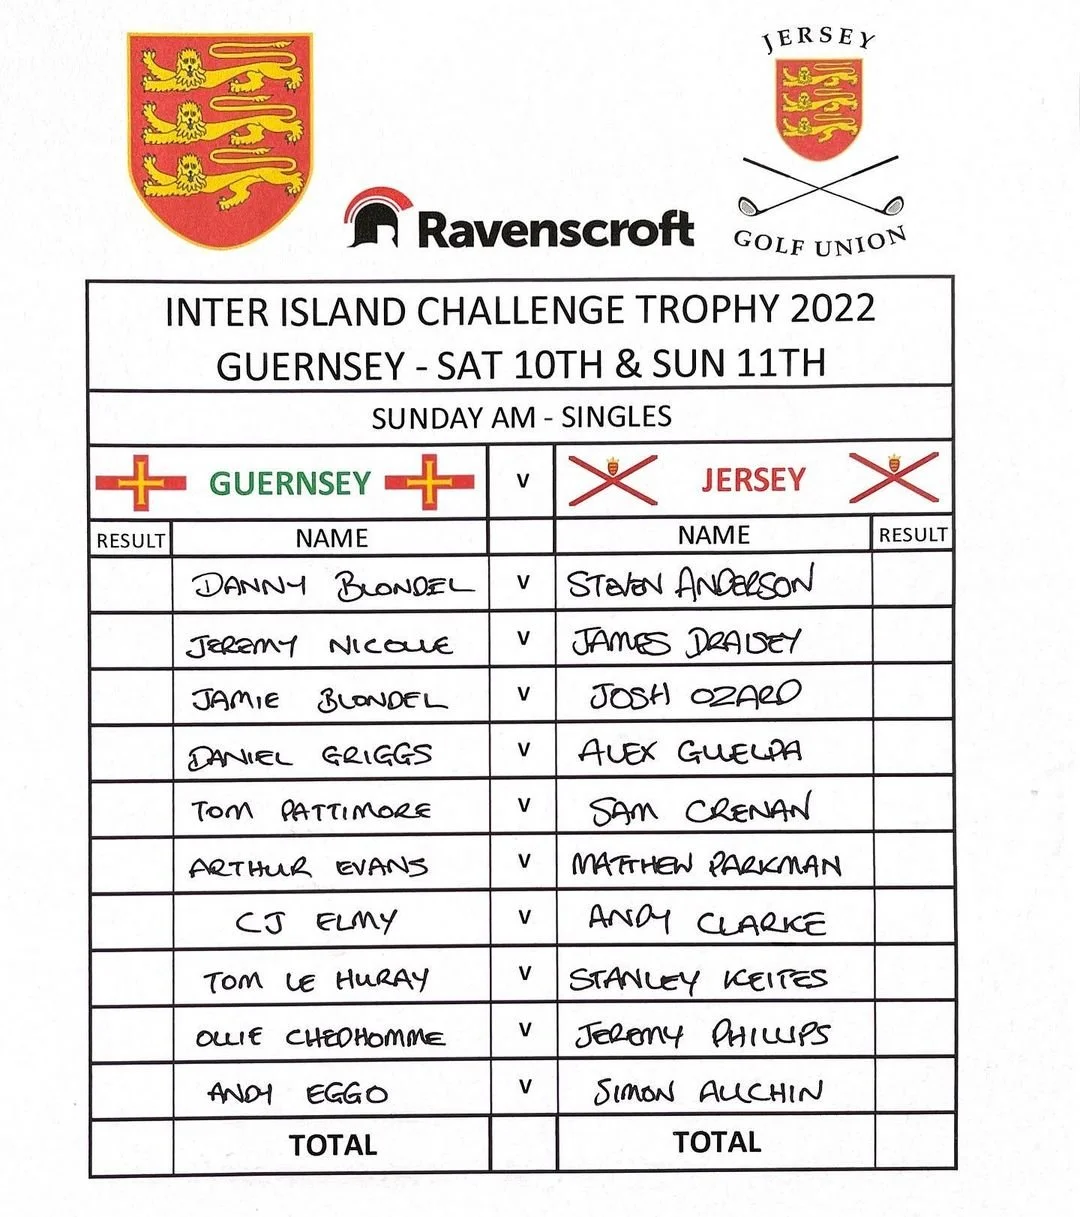 JERSEY
GOLF UNION
Ravenscroft
INTER ISLAND CHALLENGE TROPHY 2022
GUERNSEY - SAT 10TH & SUN 11TH
SUNDAY AM - SINGLES
GUERNSEY v JERSEY
RESULT NAME NAME RESULT
DANNY BLONDEL v STEVEN ANDERSON
JEREMY NICOLLE v JAMES DRAISEY
JAMIE BLONDEL v JOSH OZARD
DANIEL GRIGGS v ALEX GUELPA
TOM PATTIMORE v SAM CRENAN
ARTHUR EVANS v MATTHEW PARKMAN
CJ ELMY v ANDY CLARKE
TOM LE HURAY v STANLEY KEITES
OLLIE CHEDHOMME v JEREMY PHILLIPS
ANDY EGGO v SIMON ALLCHIN
TOTAL TOTAL